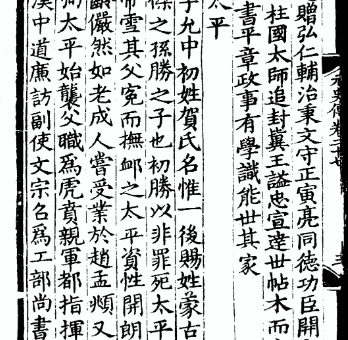 贈弘仁輔治秉文守正寅亮同德功臣開
柱國太師追封冀王謚忠宣達世帖木而
書平章政事有學識能世其家
太平
字允中初姓賀氏名惟一後賜姓蒙古
傑之孫勝之子也初勝以非罪死太平
帝雪其父冤而撫䘏之太平資性開朗
齡儼然如老成人嘗受業於趙孟頫又
太平始襲父職爲虎賁親軍都指揮
漢中道廉訪副使文宗召爲工部尚書